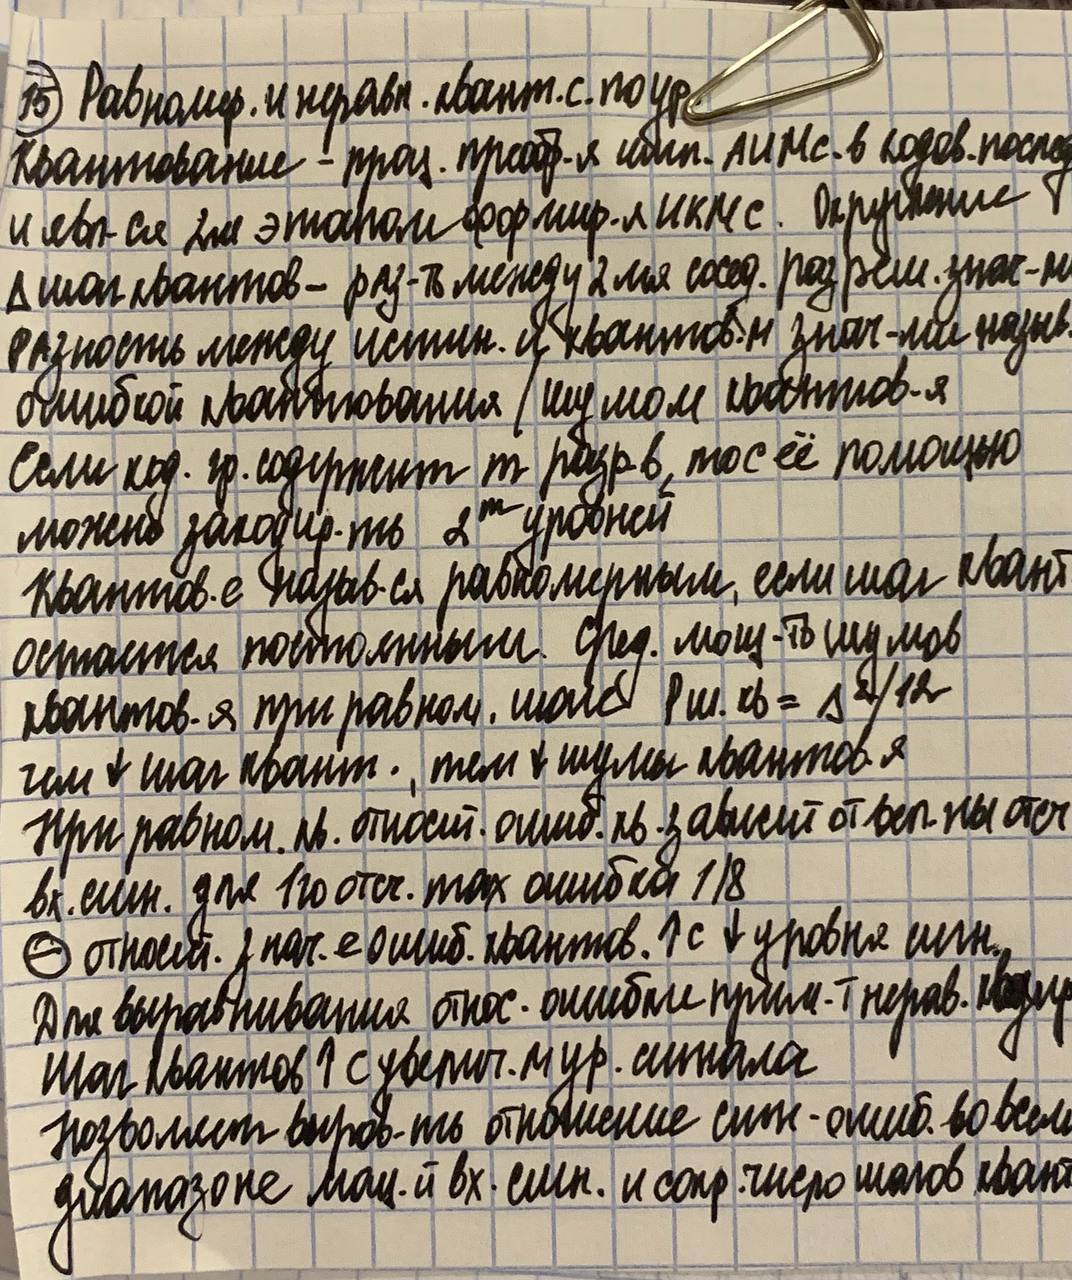 15 Равномер. и неравн. квант. с. по ур.
Квантование - проц. преобр-я имп. АИМс. в кодов. послед
и явл-ся 2м этапом формир-я ИКМс. Округление
Δ шаг квантов - раз-ть между 2мя сосед. разреш. знач-ми
Разность между истин. и квантов.м знач-ми назыв.
ошибкой квантования / шумом квантов-я
Если код. гр. содержит m разр-в, то с её помощью
можно закодир-ть 2^m уровней
Квантов-е назыв-ся равномерным, если шаг квант
остается постоянным. Сред. мощ-ть шумов
квантов-я при равном. шаге Рш.кв = Δ²/12
чем ↓ шаг квант., тем ↓ шумы квантов-я
При равном. кв. относит. ошиб. кв. зависит от вел-ны отсч
вх. сигн. для 1го отсч. max ошибка 1/8
⊖ относит. знач-е ошиб. квантов. ↑ с ↓ уровня сигн.
Для выравнивания относ. ошибки прим-т нерав.
Шаг квантов ↑ с увелич.м ур. сигнала
Позволяет выров-ть отношение сигн-ошиб. во всем
диапазоне мощ-й вх. сигн. и сокр. число шагов квант